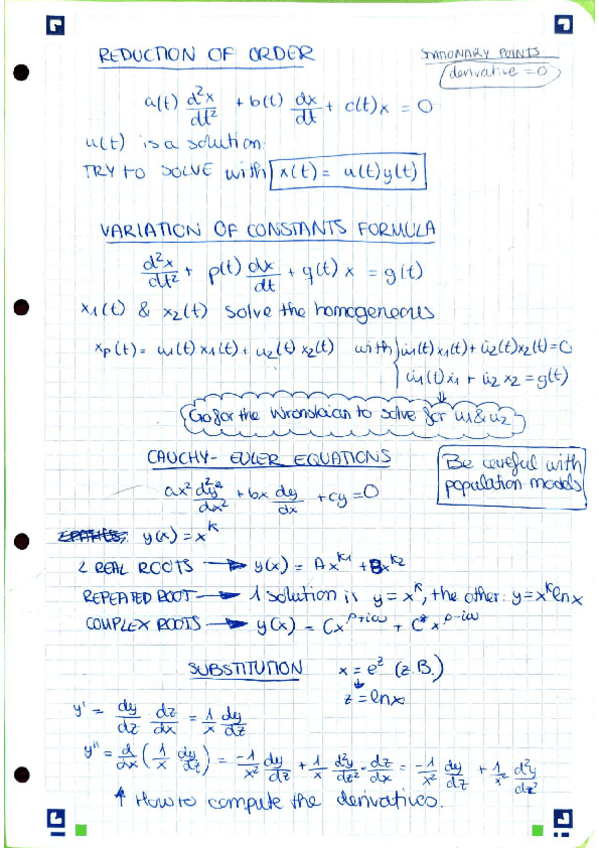 REDUCTION OF ORDER
STATIONARY POINTS
derivative = 0
a(t) d²x/dt² + b(t) dx/dt + c(t)x = 0
u(t) is a solution.
TRY to SOLVE with x(t) = u(t)y(t)
VARIATION OF CONSTANTS FORMULA
d²x/dt² + p(t) dx/dt + q(t)x = g(t)
x₁(t) & x₂(t) solve the homogeneous
xp(t) = u₁(t)x₁(t) + u₂(t)x₂(t) with { u̇₁(t)x₁(t) + u̇₂(t)x₂(t) = 0
u̇₁(t)ẋ₁ + u̇₂ẋ₂ = g(t)
Go for the Wronskian to solve for u₁ & u₂
CAUCHY-EULER EQUATIONS
Be careful with
population models
ax² d²y/dx² + bx dy/dx + cy = 0
y(x) = xᵏ
2 REAL ROOTS → y(x) = Axᵏ¹ + Bxᵏ²
REPEATED ROOT → 1 solution is y = xᵏ, the other: y = xᵏ ln x
COMPLEX ROOTS → y(x) = Cx^(ρ+iω) + C* x^(ρ-iω)
SUBSTITUTION x = eᶻ (z.B.)
z = ln x
y' = dy/dz dz/dx = 1/x dy/dz
y'' = d/dx (1/x dy/dz) = -1/x² dy/dz + 1/x d²y/dz² · dz/dx = -1/x² dy/dz + 1/x² d²y/dz²
↑ How to compute the derivatives.